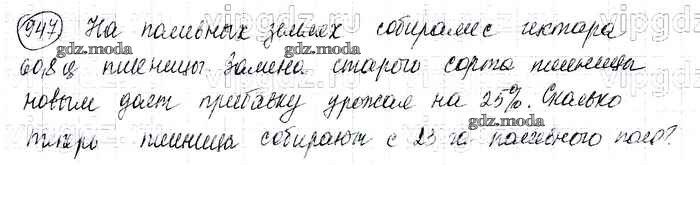 947 На поливных землях собирали с гектара
60,8 ц пшеницы. Замена старого сорта пшеницы
новым дает прибавку урожая на 25%. Сколько
теперь пшеницы собирают с 23 га поливного поля?
gdz.moda
gdz.moda
gdz.moda
gdz.moda
gdz.moda
gdz.moda